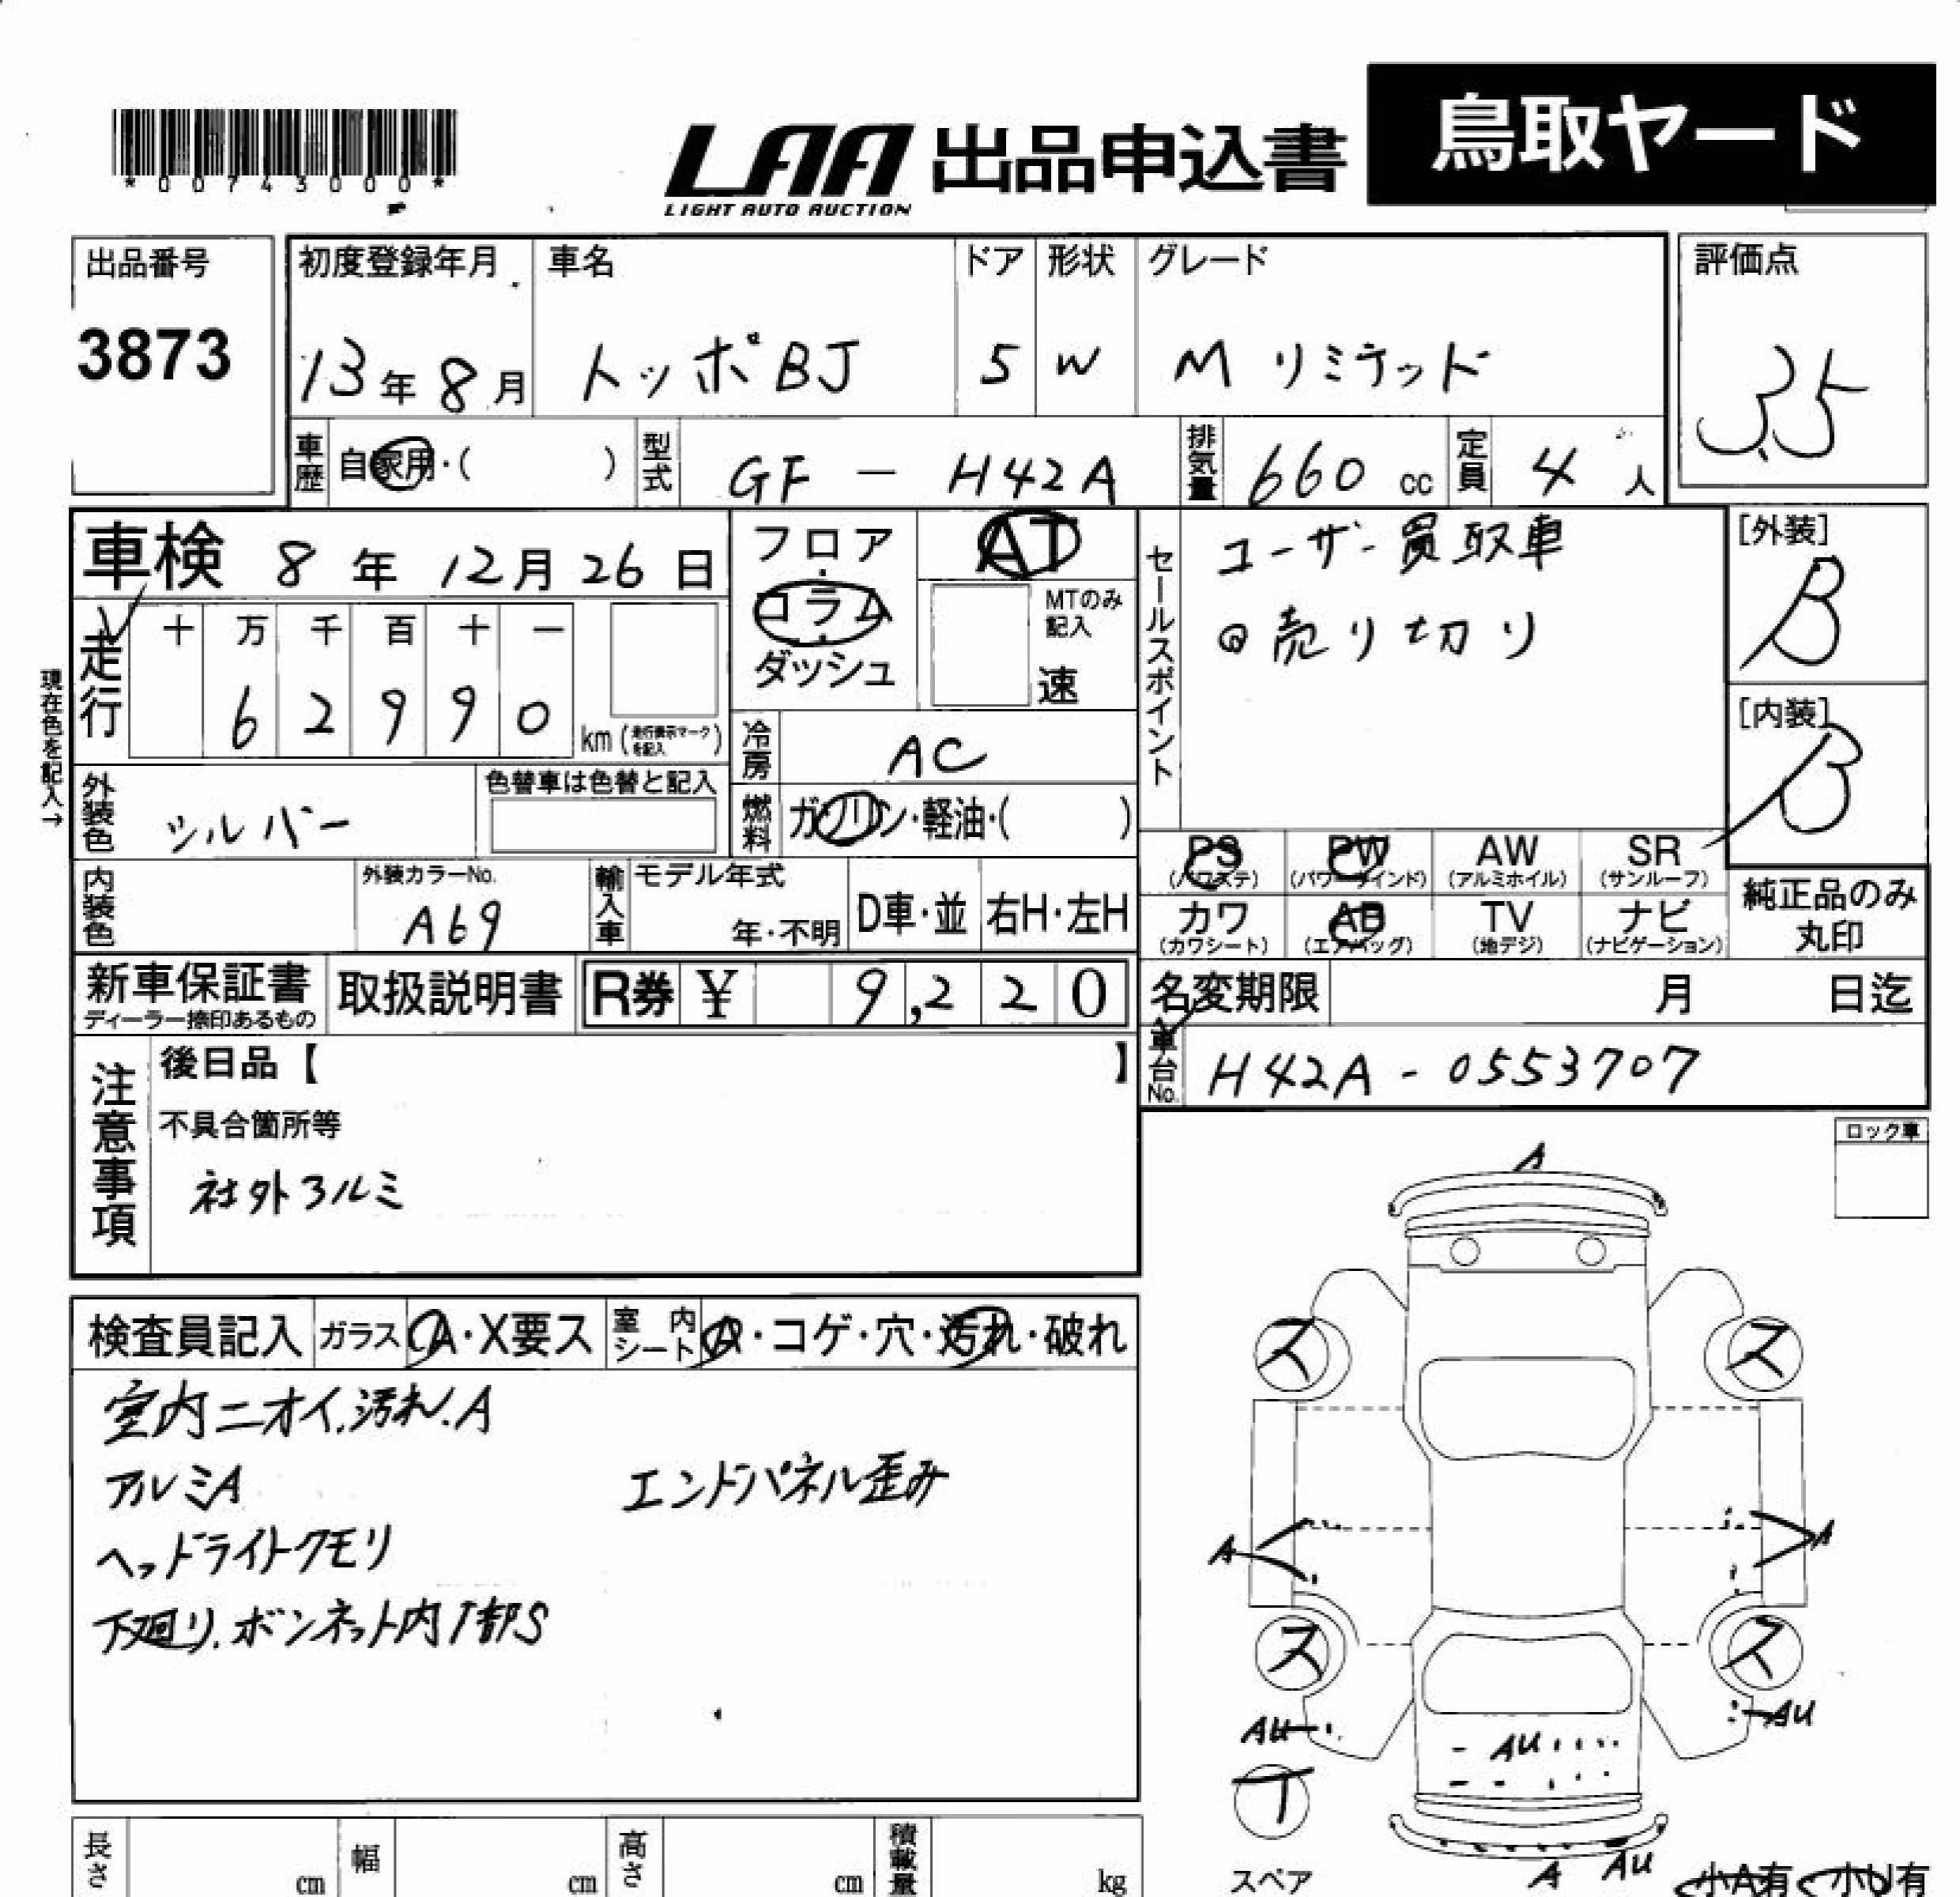 *00743000*
LAA 出品申込書 鳥取ヤード
LIGHT AUTO AUCTION
出品番号 初度登録年月 車名 ドア 形状 グレード 評価点
3873 13年8月 トッポBJ 5 W M リミテッド 3.5
車歴 自家用・( ) 型式 GF - H42A 排気量 660 cc 定員 4 人
車検 8 年 12 月 26 日
フロア・コラム・ダッシュ AT
MTのみ記入 速
セールスポイント ユーザー買取車
◎売り切り
[外装] B
[内装] B
走行 十 万 千 百 十 一
6 2 9 9 0 km (走行表示マークを記入)
現在色を記入→
冷房 AC
外装色 シルバー 色替車は色替と記入
燃料 ガソリン・軽油・( )
PS (パワステ) PW (パワーウインド) AW (アルミホイル) SR (サンルーフ)
カワ (カワシート) AB (エアバッグ) TV (地デジ) ナビ (ナビゲーション)
純正品のみ丸印
内装色 外装カラーNo. A69 輸入車 モデル年式 年・不明 D車・並 右H・左H
新車保証書 ディーラー捺印あるもの 取扱説明書 R券 ¥ 9,220
名変期限 月 日迄
車台No. H42A - 0553707
注意事項 後日品【 】
不具合箇所等
社外アルミ
ロック車
検査員記入 ガラス A・X要ス 室内シート A・コゲ・穴・汚れ・破れ
室内ニオイ.汚れ.A
アルミA エンドパネル歪み
ヘッドライトクモリ
下廻り.ボンネット内1部S
A
ス ス
A A
ス ス
AU AU AU
T
スペア
A AU
小A有 小U有
長さ cm 幅 cm 高さ cm 積載量 kg